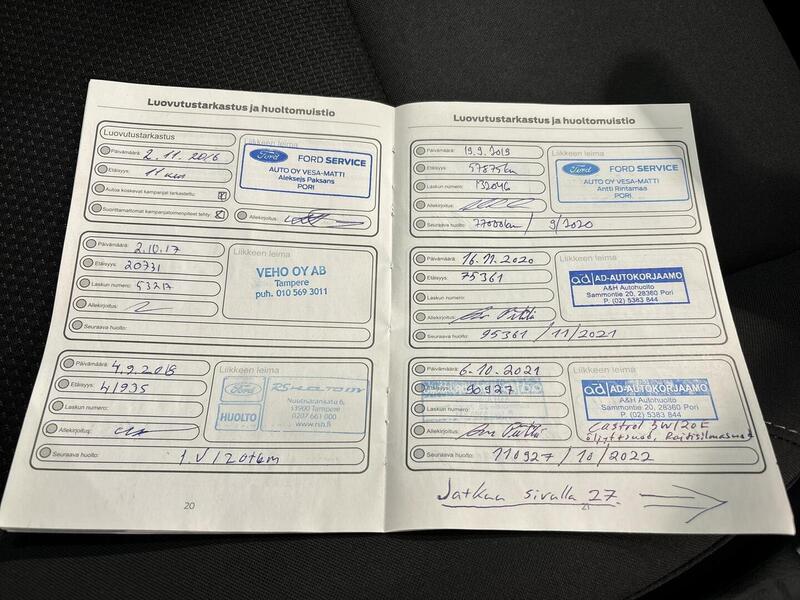 Luovutustarkastus ja huoltomuistio
Luovutustarkastus
Päivämäärä: 2.11.2016
Etäisyys: 11 km
Autoa koskevat kampanjat tarkastettu
Suorittamattomat kampanjatoimenpiteet tehty
Allekirjoitus:
Liikkeen leima
Ford FORD SERVICE
AUTO OY VESA-MATTI
Aleksejs Paksans
PORI
Päivämäärä: 2.10.17
Etäisyys: 20731
Laskun numero: 53217
Allekirjoitus:
Seuraava huolto:
Liikkeen leima
VEHO OY AB
Tampere
puh. 010 569 3011
Päivämäärä: 4.9.2018
Etäisyys: 41935
Laskun numero:
Allekirjoitus:
Seuraava huolto: 1.V / 20tkm
Liikkeen leima
Ford
HUOLTO
Tampere
0207 661 000
www.rsh.fi
20
Luovutustarkastus ja huoltomuistio
Päivämäärä: 19.9.2019
Etäisyys: 57875km
Laskun numero: 132046
Allekirjoitus:
Seuraava huolto: 77000km / 9/2020
Liikkeen leima
Ford FORD SERVICE
AUTO OY VESA-MATTI
Antti Rintamaa
PORI
Päivämäärä: 16.11.2020
Etäisyys: 75361
Laskun numero:
Allekirjoitus:
Seuraava huolto: 95361 / 11/2021
Liikkeen leima
ad AD-AUTOKORJAAMO
A&H Autohuolto
Sammontie 20, 28360 Pori
P. (02) 5383 844
Päivämäärä: 6.10.2021
Etäisyys: 90927
Laskun numero:
Allekirjoitus:
Seuraava huolto: 110927 / 10/2022
Liikkeen leima
ad AD-AUTOKORJAAMO
A&H Autohuolto
Sammontie 20, 28360 Pori
P. (02) 5383 844
Castrol 5W20E
Jatkuu sivulla 27
21